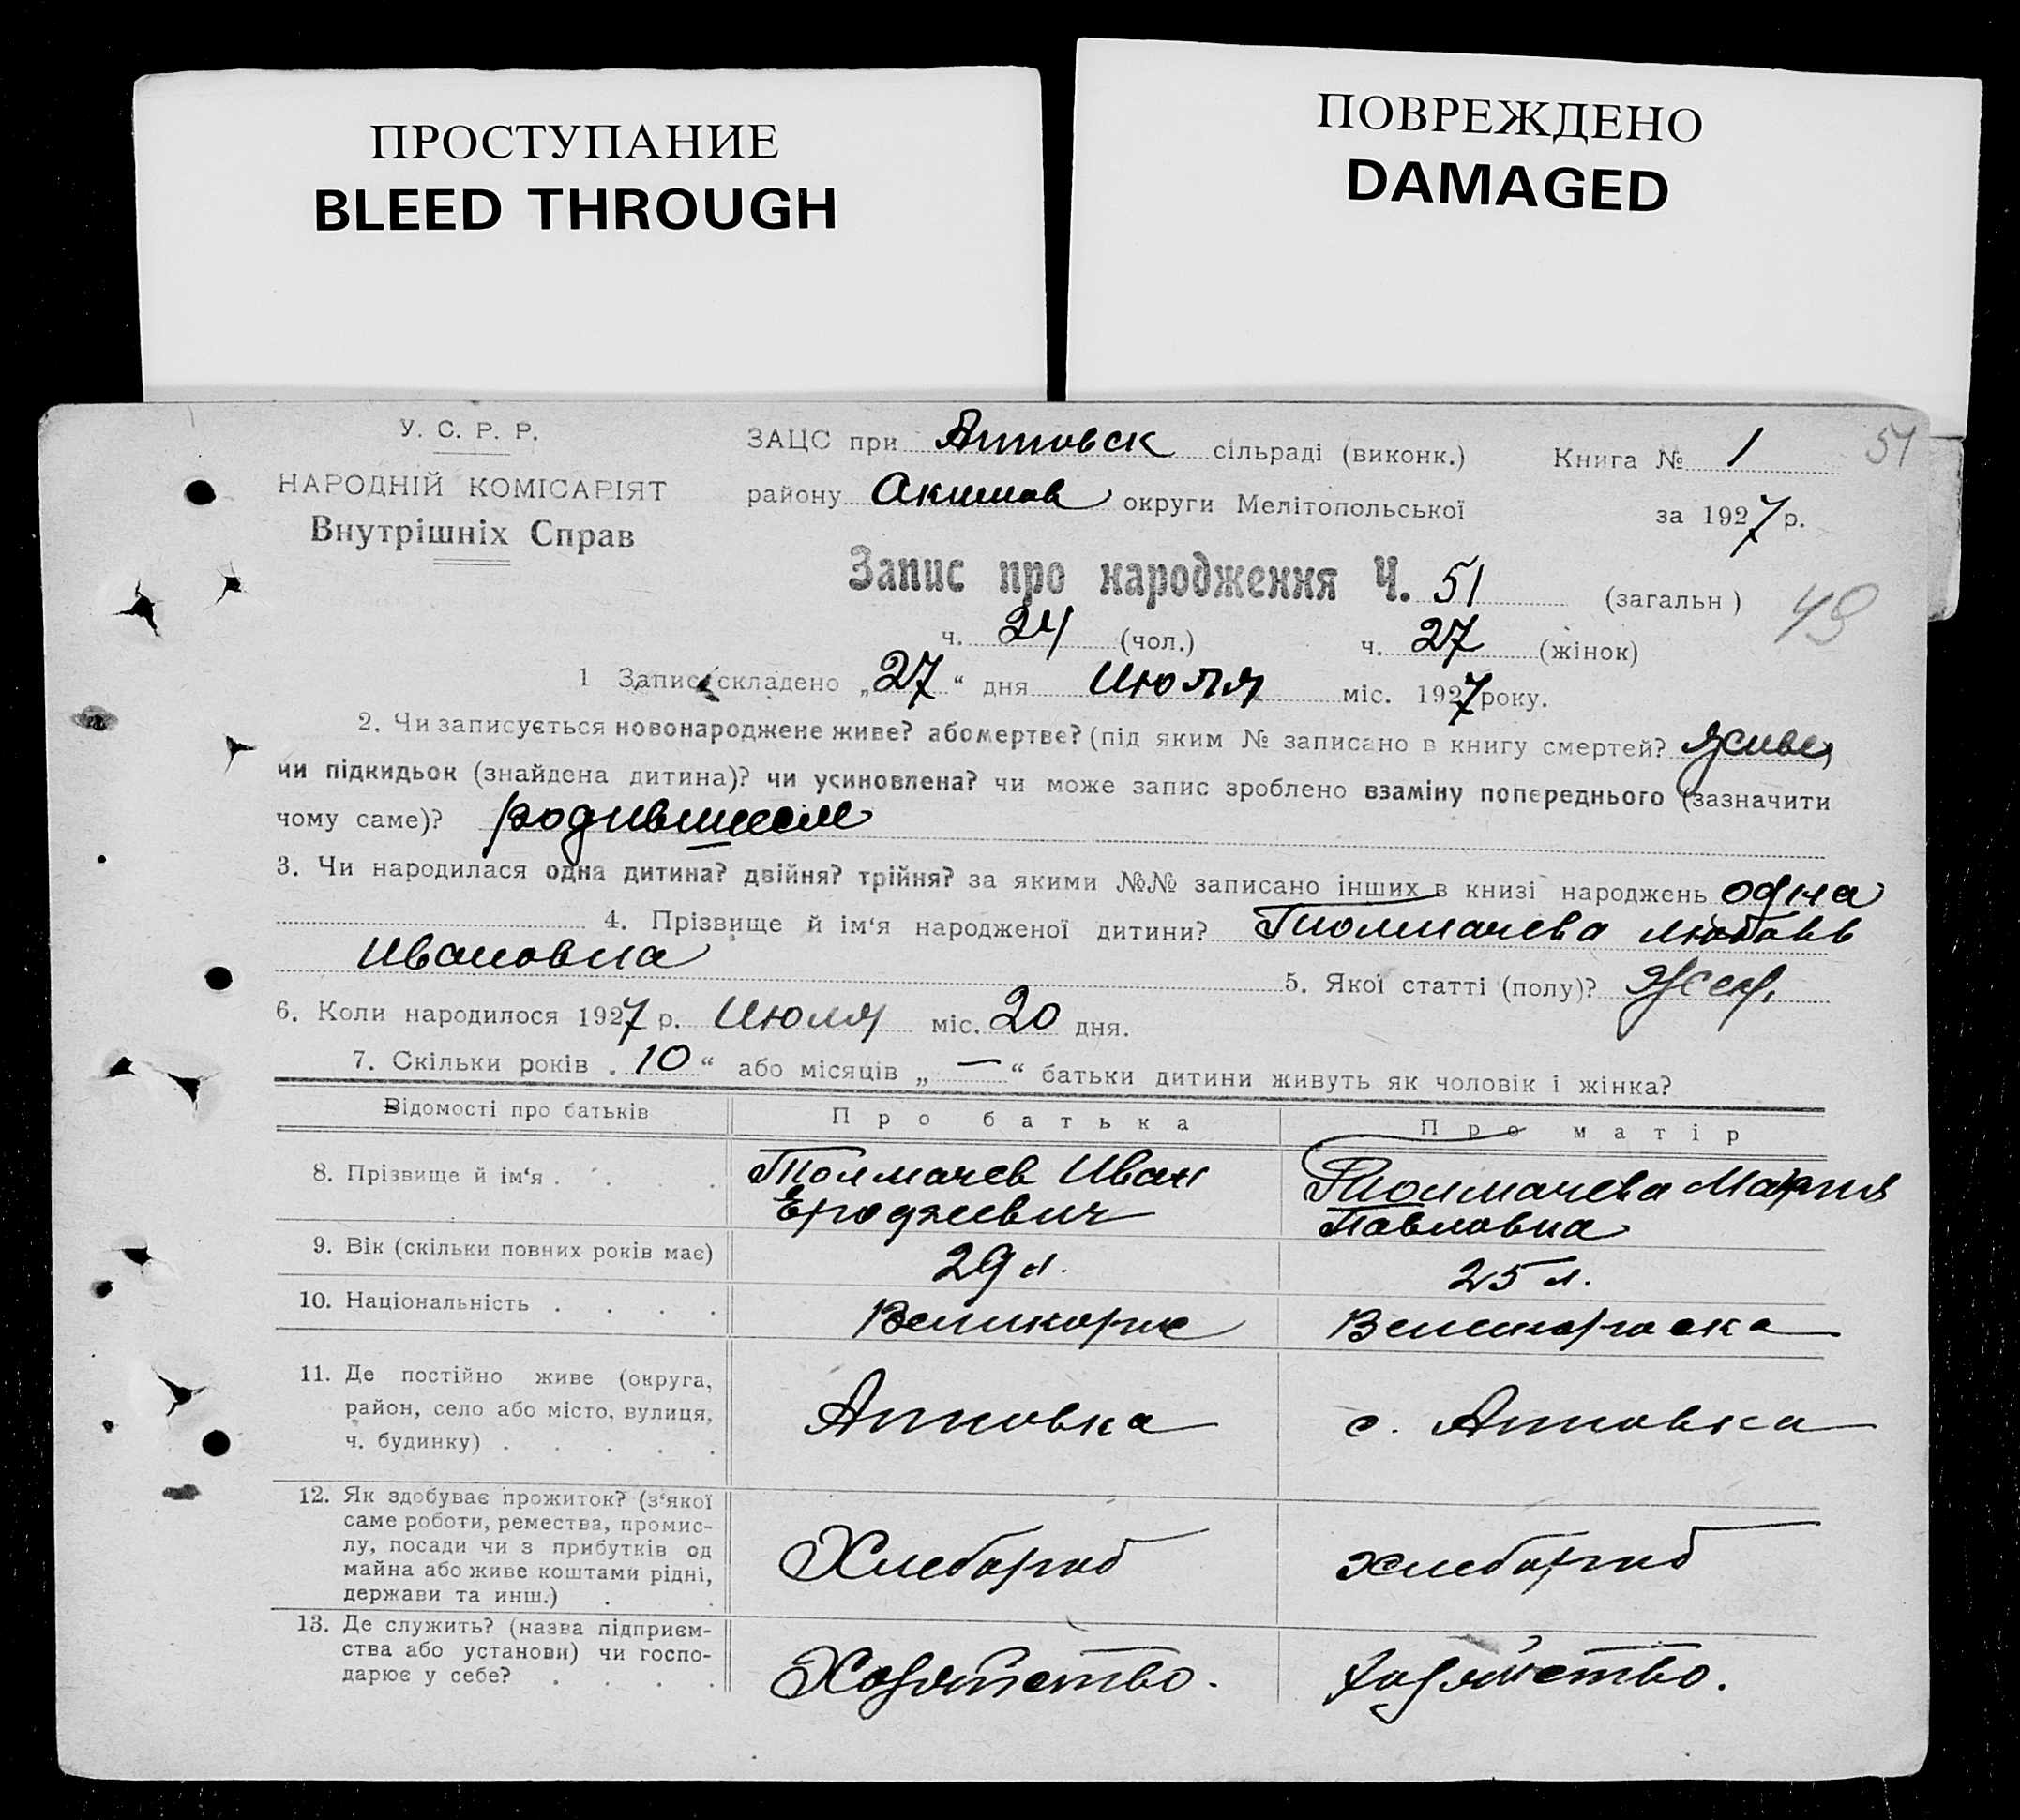 ПРОСТУПАНИЕ
BLEED THROUGH
ПОВРЕЖДЕНО
DAMAGED
У. С. Р. Р.
НАРОДНІЙ КОМІСАРІЯТ
Внутрішніх Справ
ЗАЦС при сільраді (виконк.) Книга № 1 51
району Акимов округи Мелітопольської за 1927 р.
Запис про народження Ч. 51 (загальн)
49
ч. 24 (чол.) ч. 27 (жінок)
1 Запис складено „27“ дня Июля міс. 1927 року.
2. Чи записується новонароджене живе? або мертве? (під яким № записано в книгу смертей? живе,
чи підкидьок (знайдена дитина)? чи усиновлена? чи може запис зроблено взаміну попереднього (зазначити
чому саме)? родившиеся
3. Чи народилася одна дитина? двійня? трійня? за якими №№ записано інших в книзі народжень одна
4. Прізвище й ім‘я народженої дитини? Толмачева Любовь
Ивановна
5. Якої статті (полу)? жен.
6. Коли народилося 1927 р. Июля міс. 20 дня.
7. Скільки років „10“ або місяців „—“ батьки дитини живуть як чоловік і жінка?
Відомості про батьків Про батька Про матір
8. Прізвище й ім‘я . . . . Толмачев Иван Толмачева Мария
Павловна
9. Вік (скільки повних років має) 29 л. 25 л.
10. Національність . . . . Великорус Великоруска
11. Де постійно живе (округа,
район, село або місто, вулиця,
ч. будинку) . . . . . с.
12. Як здобуває прожиток? (з‘якої
саме роботи, ремества, промис-
лу, посади чи з прибутків од
майна або живе коштами рідні,
держави та инш.) . . Хлебороб хлебороб
13. Де служить? (назва підприєм-
ства або установи) чи госпо-
дарює у себе? . . . . Хозяйство. Хозяйство.